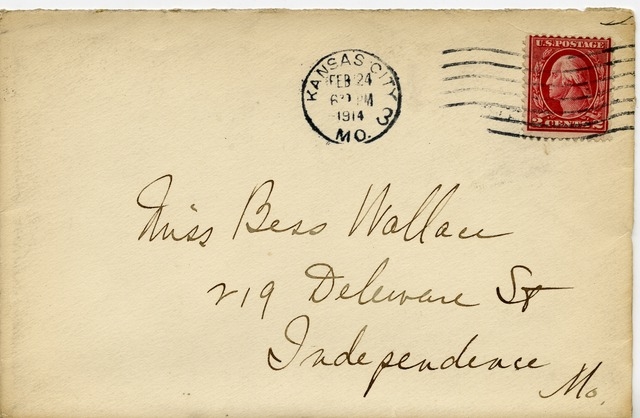 KANSAS CITY 3
FEB 24
6 30 PM
1914
MO.
U.S. POSTAGE
2 CENTS 2
Miss Bess Wallace
219 Deleware St
Independence
Mo.